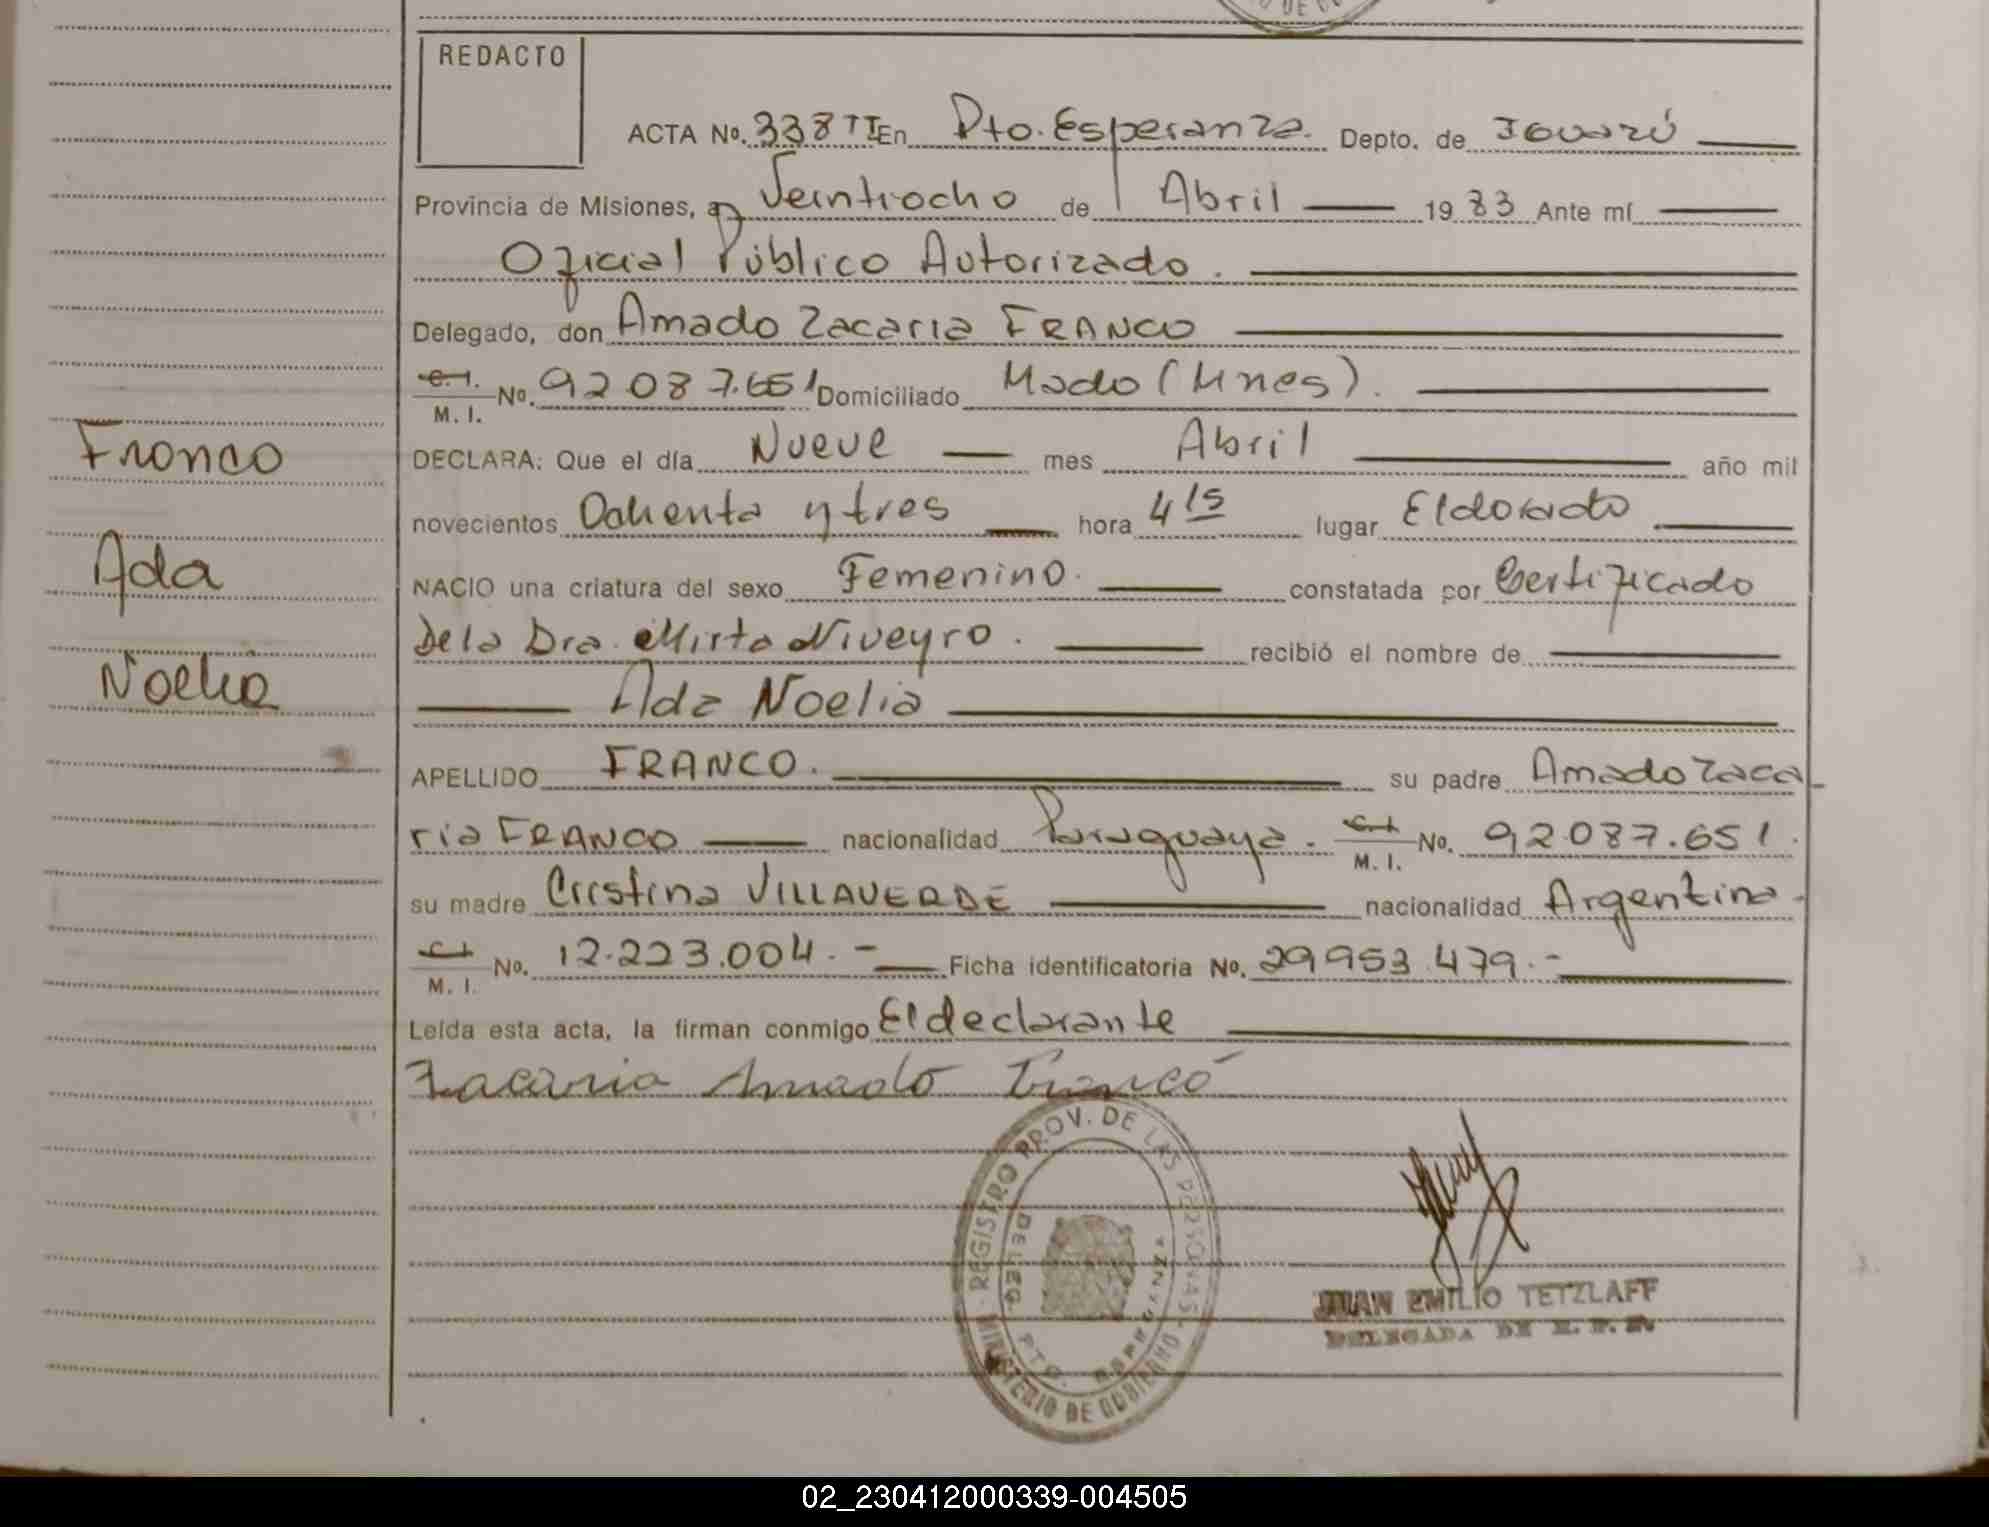 REDACTO
ACTA Nº. 338 TI En Pto. Esperanza. Depto. de Iguazú
Provincia de Misiones, a Veintiocho de Abril 19 83 Ante mí
Oficial Público Autorizado.
Delegado, don Amado Zacaria FRANCO
C. I.
M. I. Nº. 92 087.651 Domiciliado Wado (Mnes).
DECLARA: Que el día Nueve mes Abril año mil
novecientos Ochenta y tres hora 4 15 lugar Eldorado
NACIO una criatura del sexo Femenino. constatada por Certificado
De la Dra. Mirta Niveyro. recibió el nombre de
Ada Noelia
APELLIDO FRANCO. su padre Amado Zaca-
ria FRANCO nacionalidad Paraguaya. C. I. M. I. Nº. 92.087.651.
su madre Cristina VILLAVERDE nacionalidad Argentina.
C. I. M. I. Nº. 12.223.004.- Ficha identificatoria Nº. 29953.479.-
Leída esta acta, la firman conmigo El declarante
Zacaria Amado Francó
Franco
Ada
Noelia
REGISTRO PROV. DE LAS PERSONAS
MINISTERIO DE GOBIERNO
DELEG. PTO. ESPERANZA
JUAN EMILIO TETZLAFF
DELEGADA DE R. P. P.
02_230412000339-004505